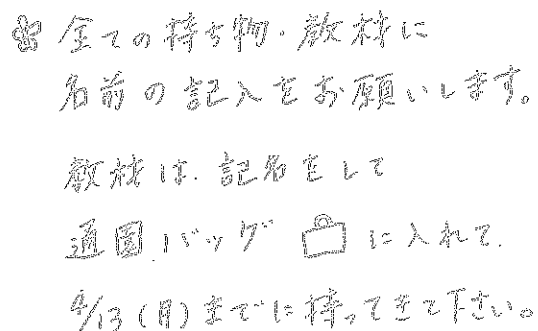 全ての持ち物・教材に
名前の記入をお願いします。
教材は、記名をして
通園バッグ に入れて、
4/13(月)までに持ってきて下さい。